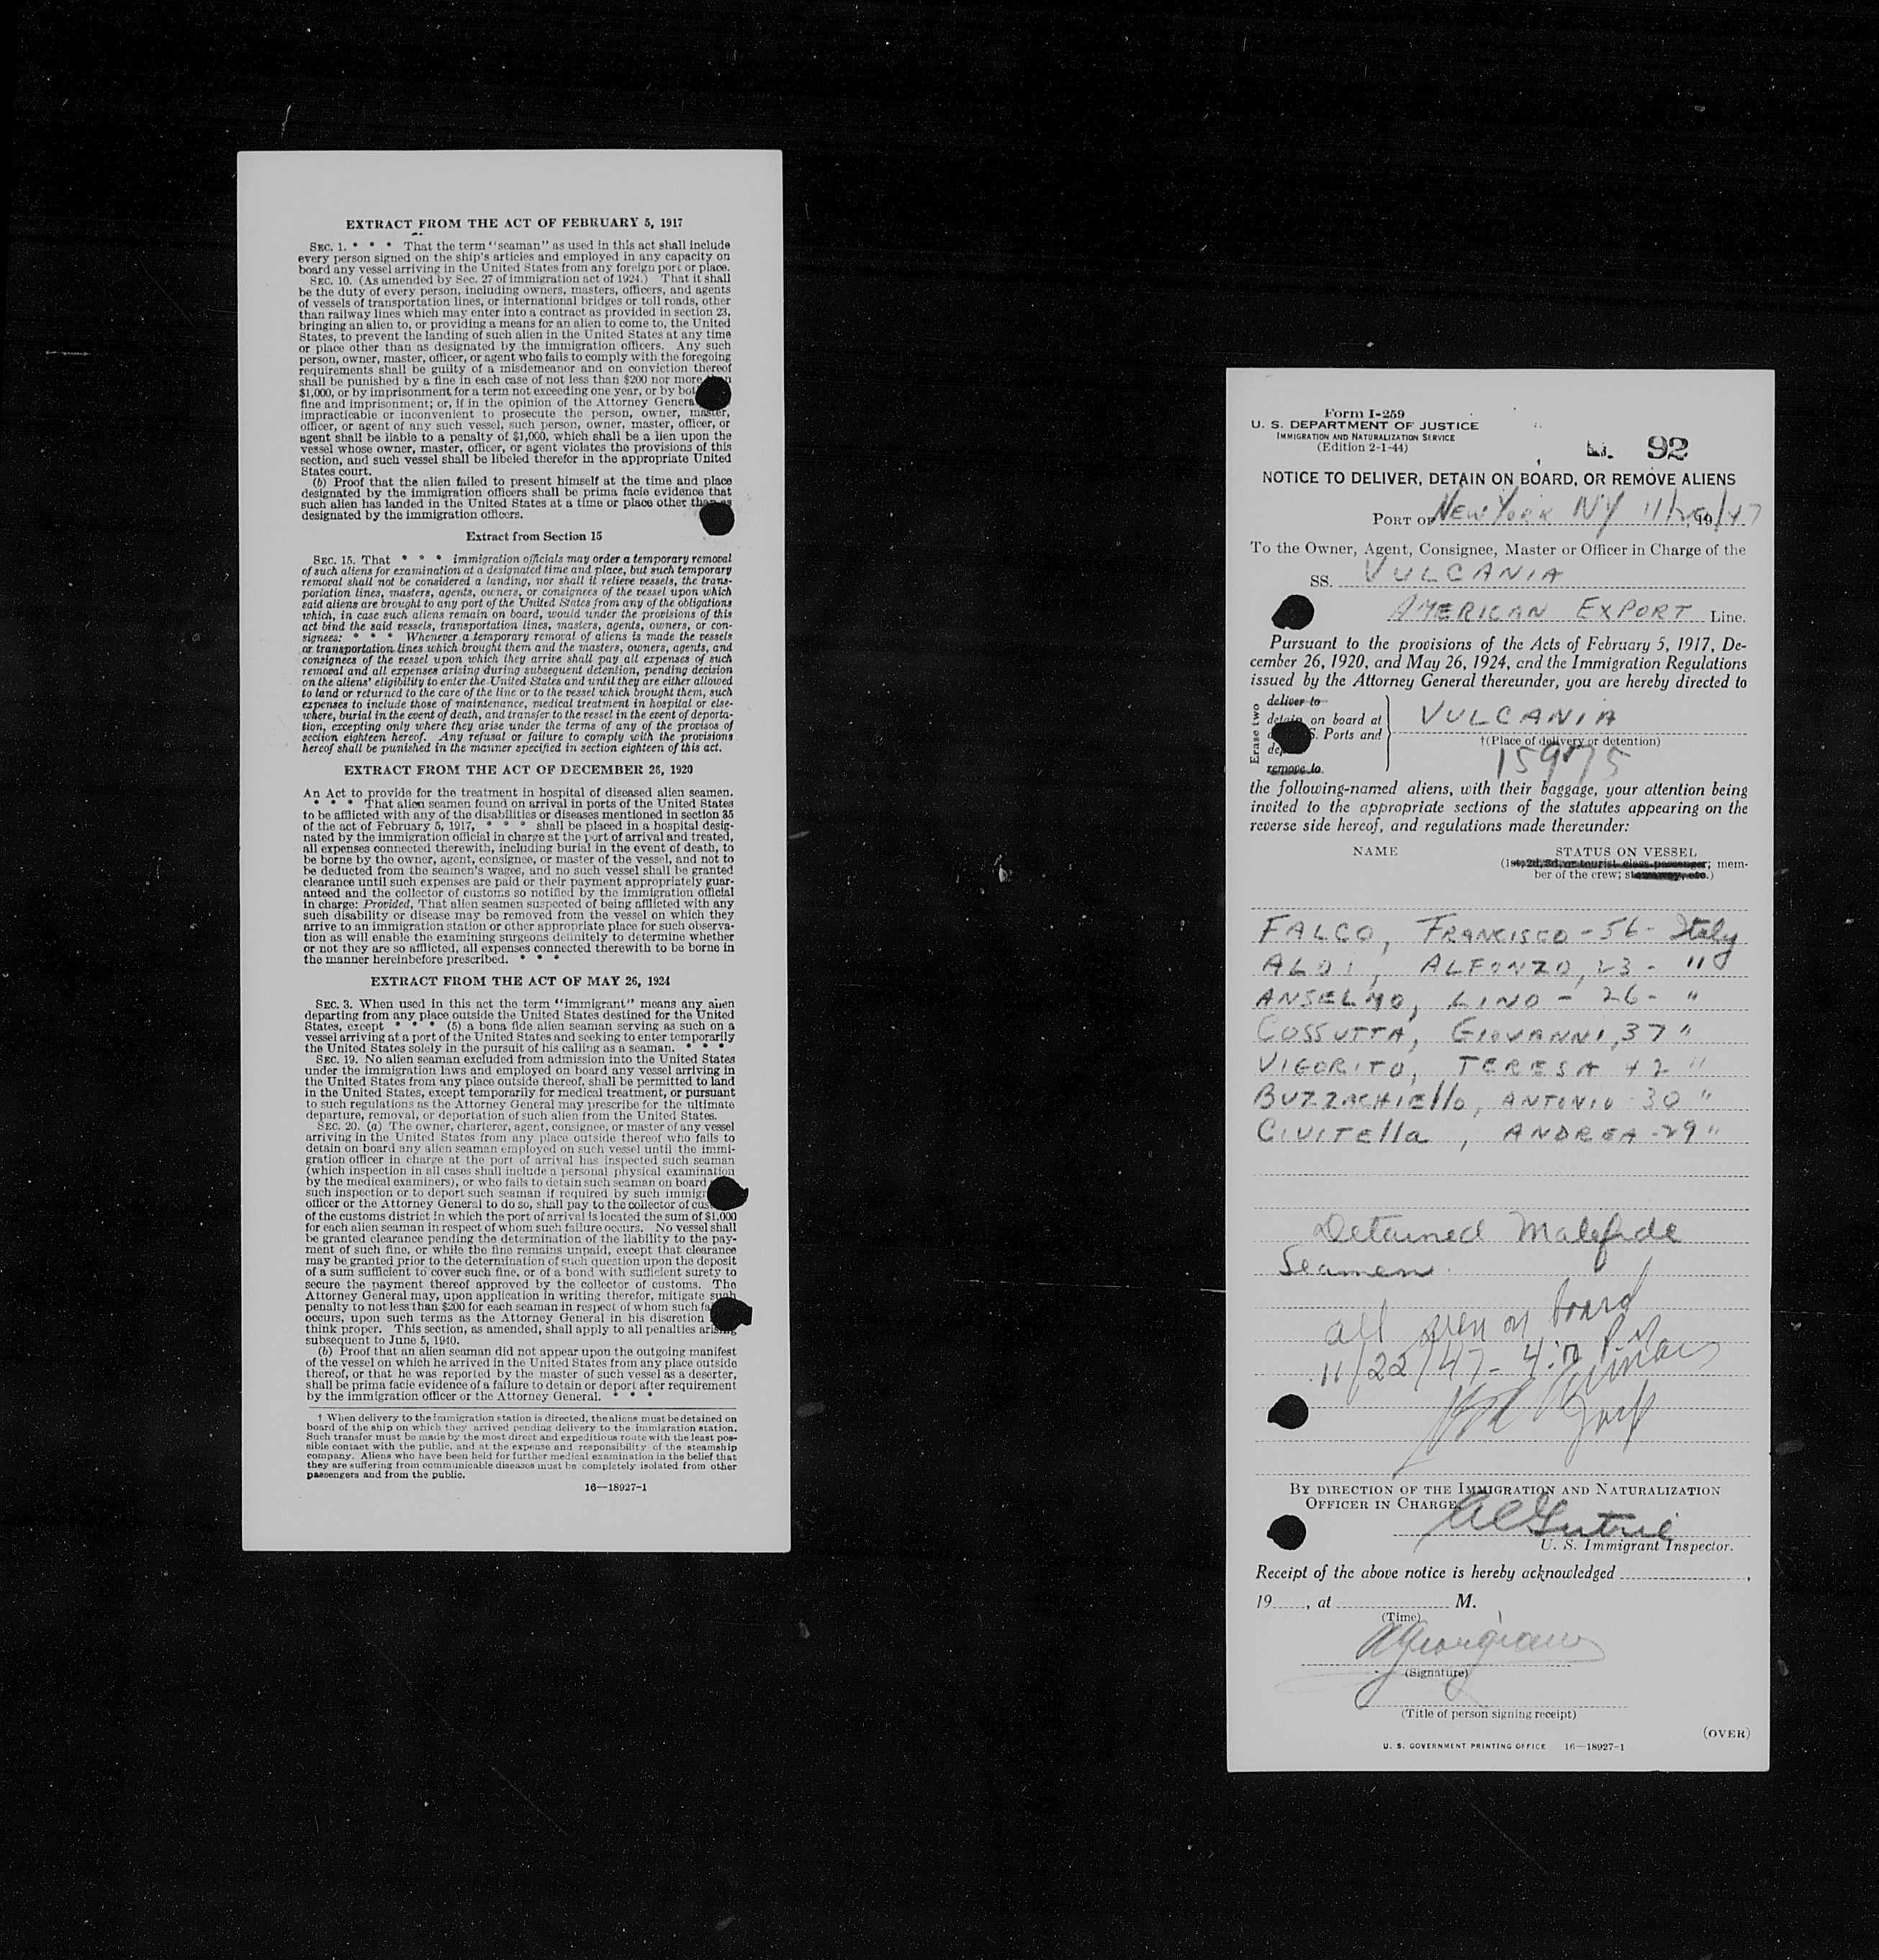 EXTRACT FROM THE ACT OF FEBRUARY 5, 1917
SEC. 1. * * * That the term "seaman" as used in this act shall include
every person signed on the ship's articles and employed in any capacity on
board any vessel arriving in the United States from any foreign port or place.
SEC. 10. (As amended by Sec. 27 of immigration act of 1924.) That it shall
be the duty of every person, including owners, masters, officers, and agents
of vessels of transportation lines, or international bridges or toll roads, other
than railway lines which may enter into a contract as provided in section 23,
bringing an alien to, or providing a means for an alien to come to, the United
States, to prevent the landing of such alien in the United States at any time
or place other than as designated by the immigration officers. Any such
person, owner, master, officer, or agent who fails to comply with the foregoing
requirements shall be guilty of a misdemeanor and on conviction thereof
shall be punished by a fine in each case of not less than $200 nor more
$1,000, or by imprisonment for a term not exceeding one year, or by
fine and imprisonment; or, if in the opinion of the Attorney
impracticable or inconvenient to prosecute the person, owner, master,
officer, or agent of any such vessel, such person, owner, master, officer, or
agent shall be liable to a penalty of $1,000, which shall be a lien upon the
vessel whose owner, master, officer, or agent violates the provisions of this
section, and such vessel shall be libeled therefor in the appropriate United
States court.
(b) Proof that the alien failed to present himself at the time and place
designated by the immigration officers shall be prima facie evidence that
such alien has landed in the United States at a time or place other than as
designated by the immigration officers.
Extract from Section 15
SEC. 15. That * * * immigration officials may order a temporary removal
of such aliens for examination at a designated time and place, but such temporary
removal shall not be considered a landing, nor shall it relieve vessels, the trans-
portation lines, masters, agents, owners, or consignees of the vessel upon which
said aliens are brought to any port of the United States from any of the obligations
which, in case such aliens remain on board, would under the provisions of this
act bind the said vessels, transportation lines, masters, agents, owners, or con-
signees: * * * Whenever a temporary removal of aliens is made the vessels
or transportation lines which brought them and the masters, owners, agents, and
consignees of the vessel upon which they arrive shall pay all expenses of such
removal and all expenses arising during subsequent detention, pending decision
on the aliens' eligibility to enter the United States and until they are either allowed
to land or returned to the care of the line or to the vessel which brought them, such
expenses to include those of maintenance, medical treatment in hospital or else-
where, burial in the event of death, and transfer to the vessel in the event of deporta-
tion, excepting only where they arise under the terms of any of the provisos of
section eighteen hereof. Any refusal or failure to comply with the provisions
hereof shall be punished in the manner specified in section eighteen of this act.
EXTRACT FROM THE ACT OF DECEMBER 26, 1920
An Act to provide for the treatment in hospital of diseased alien seamen.
* * * That alien seamen found on arrival in ports of the United States
to be afflicted with any of the disabilities or diseases mentioned in section 35
of the act of February 5, 1917, * * * shall be placed in a hospital desig-
nated by the immigration official in charge at the port of arrival and treated,
all expenses connected therewith, including burial in the event of death, to
be borne by the owner, agent, consignee, or master of the vessel, and not to
be deducted from the seamen's wages, and no such vessel shall be granted
clearance until such expenses are paid or their payment appropriately guar-
anteed and the collector of customs so notified by the immigration official
in charge: Provided, That alien seamen suspected of being afflicted with any
such disability or disease may be removed from the vessel on which they
arrive to an immigration station or other appropriate place for such observa-
tion as will enable the examining surgeons definitely to determine whether
or not they are so afflicted, all expenses connected therewith to be borne in
the manner hereinbefore prescribed. * * *
EXTRACT FROM THE ACT OF MAY 26, 1924
SEC. 3. When used in this act the term "immigrant" means any alien
departing from any place outside the United States destined for the United
States, except * * * (5) a bona fide alien seaman serving as such on a
vessel arriving at a port of the United States and seeking to enter temporarily
the United States solely in the pursuit of his calling as a seaman. * * *
SEC. 19. No alien seaman excluded from admission into the United States
under the immigration laws and employed on board any vessel arriving in
the United States from any place outside thereof, shall be permitted to land
in the United States, except temporarily for medical treatment, or pursuant
to such regulations as the Attorney General may prescribe for the ultimate
departure, removal, or deportation of such alien from the United States.
SEC. 20. (a) The owner, charterer, agent, consignee, or master of any vessel
arriving in the United States from any place outside thereof who fails to
detain on board any alien seaman employed on such vessel until the immi-
gration officer in charge at the port of arrival has inspected such seaman
(which inspection in all cases shall include a personal physical examination
by the medical examiners), or who fails to detain such seaman on board
such inspection or to deport such seaman if required by such
officer or the Attorney General to do so, shall pay to the collector of
of the customs district in which the port of arrival is located the sum of $1,000
for each alien seaman in respect of whom such failure occurs. No vessel shall
be granted clearance pending the determination of the liability to the pay-
ment of such fine, or while the fine remains unpaid, except that clearance
may be granted prior to the determination of such question upon the deposit
of a sum sufficient to cover such fine, or of a bond with sufficient surety to
secure the payment thereof approved by the collector of customs. The
Attorney General may, upon application in writing therefor, mitigate such
penalty to not less than $200 for each seaman in respect of whom such
occurs, upon such terms as the Attorney General in his discretion
think proper. This section, as amended, shall apply to all penalties arising
subsequent to June 5, 1940.
(b) Proof that an alien seaman did not appear upon the outgoing manifest
of the vessel on which he arrived in the United States from any place outside
thereof, or that he was reported by the master of such vessel as a deserter,
shall be prima facie evidence of a failure to detain or deport after requirement
by the immigration officer or the Attorney General. * * *
† When delivery to the immigration station is directed, the aliens must be detained on
board of the ship on which they arrived pending delivery to the immigration station.
Such transfer must be made by the most direct and expeditious route with the least pos-
sible contact with the public, and at the expense and responsibility of the steamship
company. Aliens who have been held for further medical examination in the belief that
they are suffering from communicable diseases must be completely isolated from other
passengers and from the public.
16—18927-1
Form I-259
U. S. DEPARTMENT OF JUSTICE
IMMIGRATION AND NATURALIZATION SERVICE
(Edition 2-1-44)
92
NOTICE TO DELIVER, DETAIN ON BOARD, OR REMOVE ALIENS
PORT OF New York NY 11/20/47
To the Owner, Agent, Consignee, Master or Officer in Charge of the
SS. VULCANIA
AMERICAN EXPORT Line.
Pursuant to the provisions of the Acts of February 5, 1917, De-
cember 26, 1920, and May 26, 1924, and the Immigration Regulations
issued by the Attorney General thereunder, you are hereby directed to
Erase two
deliver to
detain on board at VULCANIA
S. Ports and
†(Place of delivery or detention)
remove to 15975
the following-named aliens, with their baggage, your attention being
invited to the appropriate sections of the statutes appearing on the
reverse side hereof, and regulations made thereunder:
NAME STATUS ON VESSEL
(1st, 2d, 3d, or tourist class passenger; mem-
ber of the crew; stowaway, etc.)
FALCO, FRANCISCO - 56 - Italy
ALOI, ALFONZO, 23 - "
ANSELMO, LINO - 26 - "
COSSUTTA, GIOVANNI, 37 "
VIGORITO, TERESA 42 "
BUZZACHIELLO, ANTONIO 30 "
CIVITELLA, ANDREA - 29 "
Detained Malefide
Seamen.
all seen on board
11/22/47 - 4:
BY DIRECTION OF THE IMMIGRATION AND NATURALIZATION
OFFICER IN CHARGE
U. S. Immigrant Inspector.
Receipt of the above notice is hereby acknowledged
19 , at M.
(Time)
(Signature)
(Title of person signing receipt)
(OVER)
U. S. GOVERNMENT PRINTING OFFICE 16—18927-1